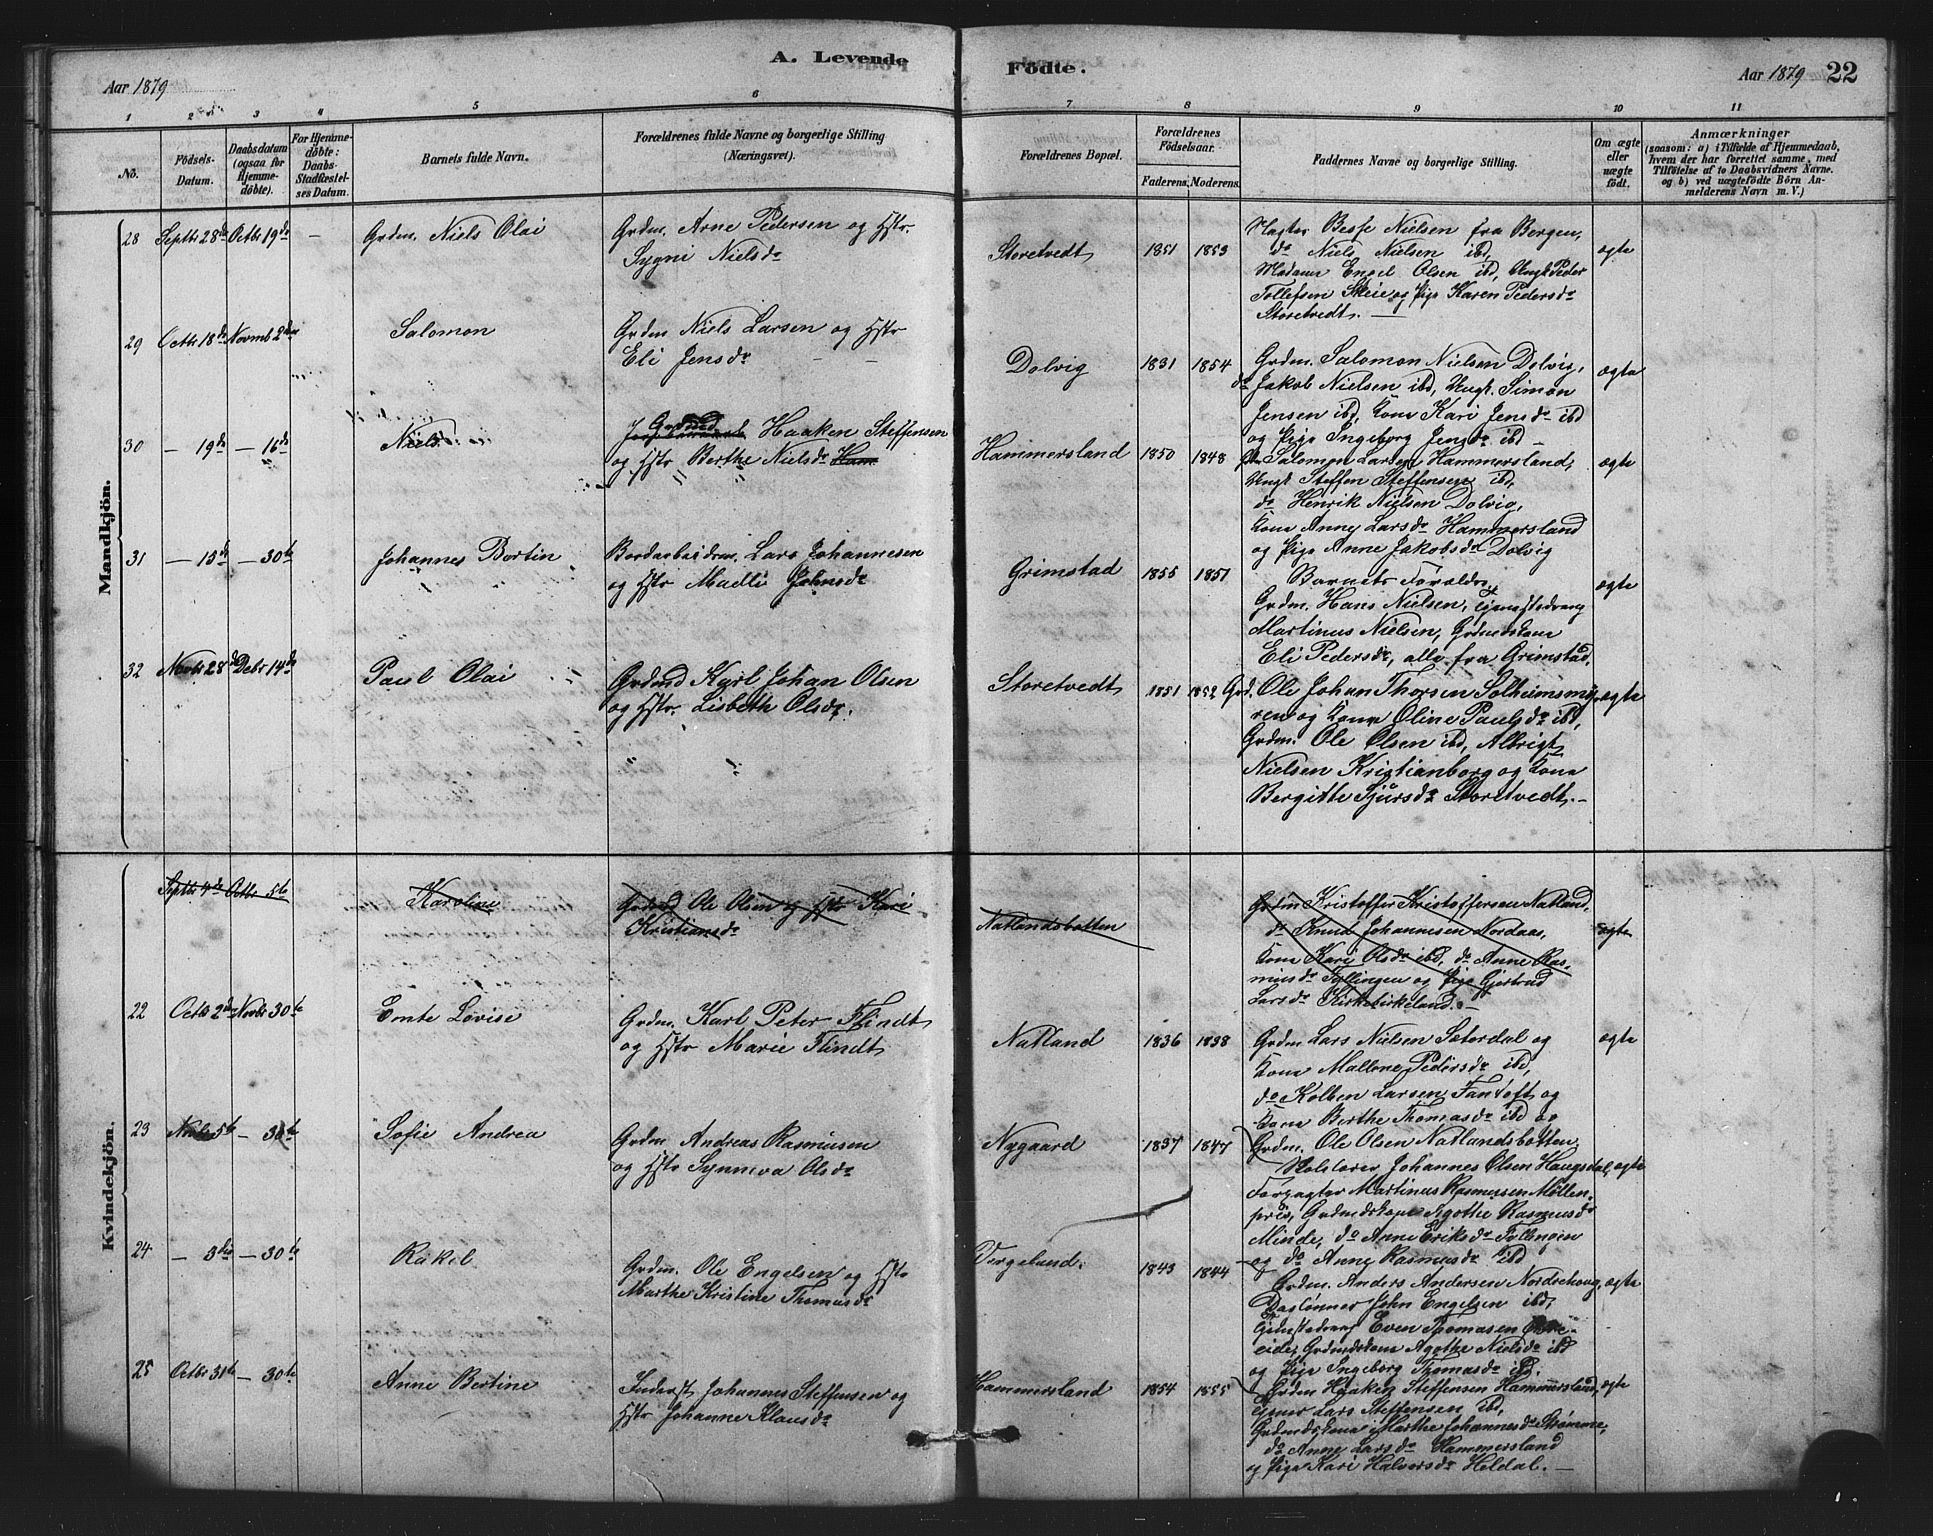 Aar 1879
A. Levende
Födte.
Aar 1879 22
1 2 3 4 5 6 7 8 9 10 11
No.
Födsels-
Datum.
Daabsdatum
(ogsaa for
Hjemme-
döbte).
For Hjemme-
döbte:
Daabs-
Stadfæstel-
ses Datum.
Barnets fulde Navn.
Forældrenes fulde Navne og borgerlige Stilling
(Næringsvei).
Forældrenes Bopæl.
Forældrenes
Födselsaar.
Faderens. Moderens.
Faddernes Navne og borgerlige Stilling.
Om ægte
eller
uægte
født.
Anmærkninger
(saasom: a) i Tilfælde af Hjemmedaab,
hvem der har forrettet samme, med
Tilföielse af to Daabsvidners Navne.
og b) ved uægtefödte Börn An-
melderens Navn m. V.)
Mandkjön.
28 Septbr 28de Octbr 19de — Grdm. Niels Olai
Grdm. Arne Pedersen og Hstr.
Sygni Nielsdr
Storetvedt 1851 1853
Magter Besse Nielsen fra Bergen,
do Niels Nielsen ibd,
Madam Engel Olsen ibd, Ungk Peder
Tollefsen Skeie og Pige Karen Pedersdr
Storetvedt. —
ægte
29 Octbr 18de Novmb 2den Salomon
Grdm Niels Larsen og Hstr
Eli Jensdr
Dolvig 1831 1854
Grdm. Salomon Nielsen Dolvig,
do Jakob Nielsen ibd, Ungk. Simon
Jensen ibd. Kone Kari Jensdr ibd
og Pige Ingeborg Jensdr ibd —
ægte
30 — 19de — 16de Niels
Grdmd Haaken Steffensen
og Hstr Berthe Nielsdr Ham
Hammersland 1850 1848
Salomon Larsen Hammersland,
Ungk Steffen Steffensen ibd,
do Henrik Nielsen Dolvig,
Kone Anne Larsdr Hammersland
og Pige Anne Jakobsdr Dolvig
ægte
31 — 15de — 30te Johannes Bertin
Lars Johannesen
og Hstr Madli Johnsdr
Grimstad 1855 1857
Barnets Forældre,
Grdm. Hans Nielsen,
Martinus Nielsen, Grdmdskone
Eli Pedersdr, alle fra Grimstad,
ægte
32 Novbr 28de Debr 14de Paul Olai
Grdmd Karl Johan Olsen
og Hstr. Lisbeth Olsdr.
Storetvedt 1851 1852
Grd. Ole Johan Thorsen Solheimsmy-
ren og Kone Oline Paulsdr ibd,
Grdm. Ole Olsen ibd, Albrigt
Nielsen Kristianborg og Kone
Bergitte Sjursdr Storetvedt. —
ægte
Kvindekjön.
Septbr 4de Octbr 5te Karoline
Grdmd Ole Olsen og Hstr Kari
Kristiansdr
Natlandsbotten
Grdm Kristoffer Kristoffersen Natland,
do Knud Johannesen Nordaas,
Kone Kari Olsdr ibd, do Anne Ras-
musdr Tyllingen og Pige Gjertrud
Larsdr Kirkebirkeland. —
ægte
22 Octbr 2de Novbr 30te Emte Lovise
Grdm. Karl Peter Flindt
og Hstr Marie Flindt
Natland 1836 1838
Grdm Lars Nielsen Sæterdal og
Kone Mallene Pedersdr ibd,
do Kolben Larsen Fantoft og
Kone Berthe Thomasdr ibd og
Grdm. Ole Olsen Natlandsbotten
ægte
23 5te — 30te Sofie Andrea
Grdm Andreas Rasmusen
og Hstr Synneva Olsdr
Nygaard 1837 1847
Skolelærer Johannes Olsen Haugsdal,
Forpagter Martinus Rasmussen Möllen-
pris, Grdmdskone Agothe Rasmusdr
Minde, do Anne Eriksdr
og do Anne Rasmusdr ibd
ægte
24 — 3die — 30te Rakel
Grdm. Ole Engelsen og Hstr
Marthe Kristine Thomasdr
1843 1844
Grdm. Anders Andersen
Daglönner John Engelsen ibd,
Even Thomasen
eide, Grdmdskone Agothe Nielsdr ibd
og Pige Ingeborg Thomasdr ibd.
ægte
25 Octbr 31te — 30te Anne Bertine
Inderst Johannes Steffensen og
Hstr Johanne Klausdr
Hammersland 1854 1855
Grdm Haaken Steffensen Hammersland,
Lars Steffensen ibd,
Grdmdskone Marthe Johannesdr Strömme,
do Anne Larsdr Hammersland
og Pige Kari Halvorsdr Heldal. —
ægte